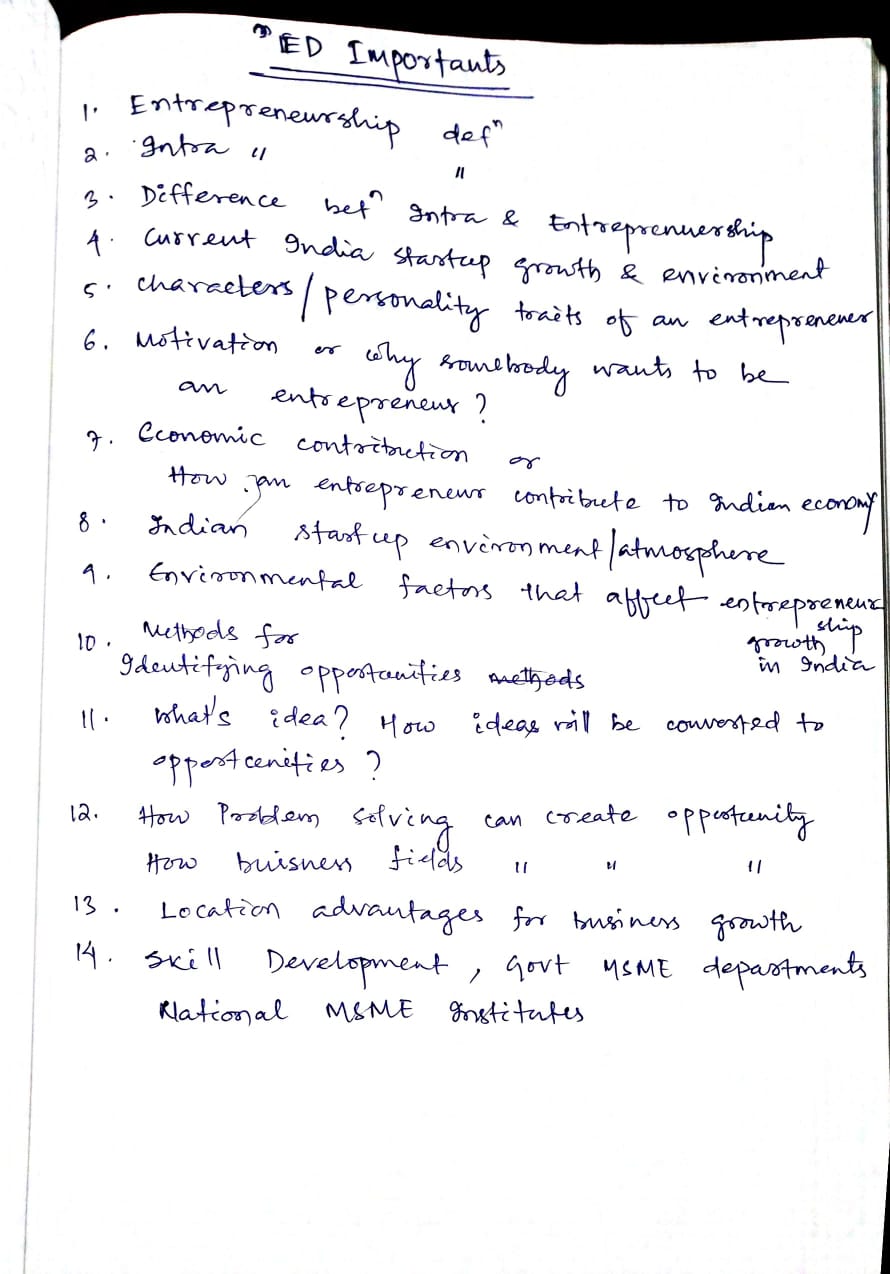 ED Importants
1. Entrepreneurship defⁿ
2. Intra " "
3. Difference betⁿ Intra & Entreprenuership
4. Current India startup growth & environment
5. characters/personality traits of an entrepreneuer
6. Motivation or why somebody wants to be
an entrepreneur ?
7. Economic contribution or
How an entrepreneur contribute to Indian economy
8. Indian startup environment/atmosphere
9. Environmental factors that affect entrepreneur
ship
growth
in India
10. Methods for
Identifying opportunities methods
11. What's idea? How ideas will be converted to
opportunities ?
12. How Problem solving can create opportunity
How buisness fields " " "
13. Location advantages for business growth
14. Skill Development, Govt MSME departments
National MSME Institutes